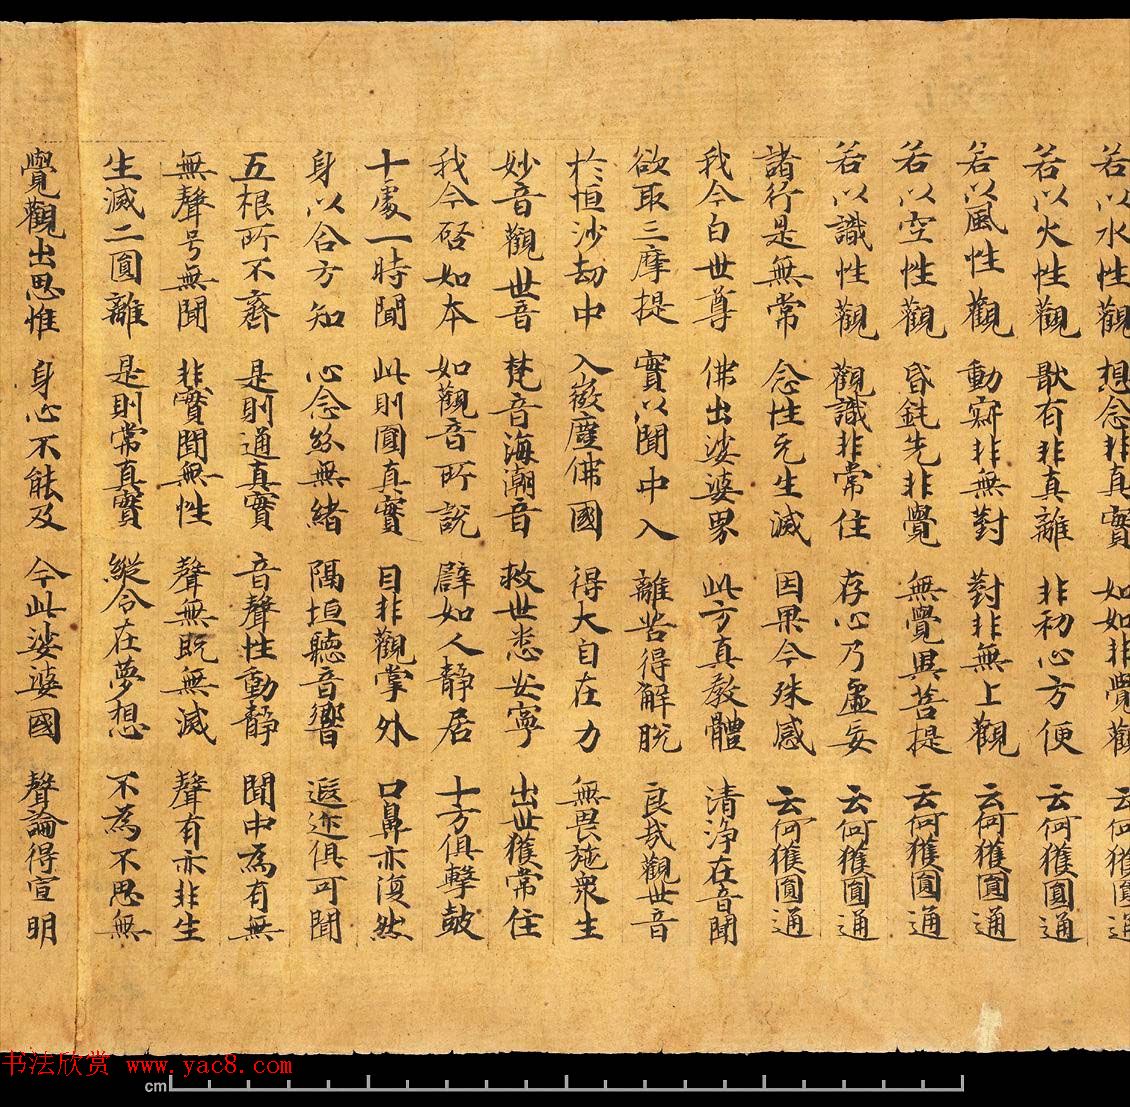 若以水性觀 想念非真實 如如非覺觀 云何獲圓通
若以火性觀 猒有非真離 非初心方便 云何獲圓通
若以風性觀 動寂非無對 對非無上覺 云何獲圓通
若以空性觀 昏鈍先非覺 無覺異菩提 云何獲圓通
若以識性觀 觀識非常住 存心乃虛妄 云何獲圓通
諸行是無常 念性元生滅 因果今殊感 云何獲圓通
我今白世尊 佛出娑婆界 此方真教體 清淨在音聞
欲取三摩提 實以聞中入 離苦得解脫 良哉觀世音
於恒沙劫中 入微塵佛國 得大自在力 無畏施眾生
妙音觀世音 梵音海潮音 救世悉安寧 出世獲常住
我今啓如本 如觀音所說 辟如人靜居 十方俱擊鼓
十處一時聞 此則圓真實 目非觀掌外 口鼻亦復然
身以合方知 心念紛無緒 隔垣聽音響 遐迩俱可聞
五根所不齊 是則通真實 音聲性動靜 聞中為有無
無聲号無聞 非實聞無性 聲無既無滅 聲有亦非生
生滅二圓離 是則常真實 縱令在夢想 不為不思無
覺觀出思惟 身心不能及 今此娑婆國 聲論得宣明
书法欣赏 www.yac8.com
cm